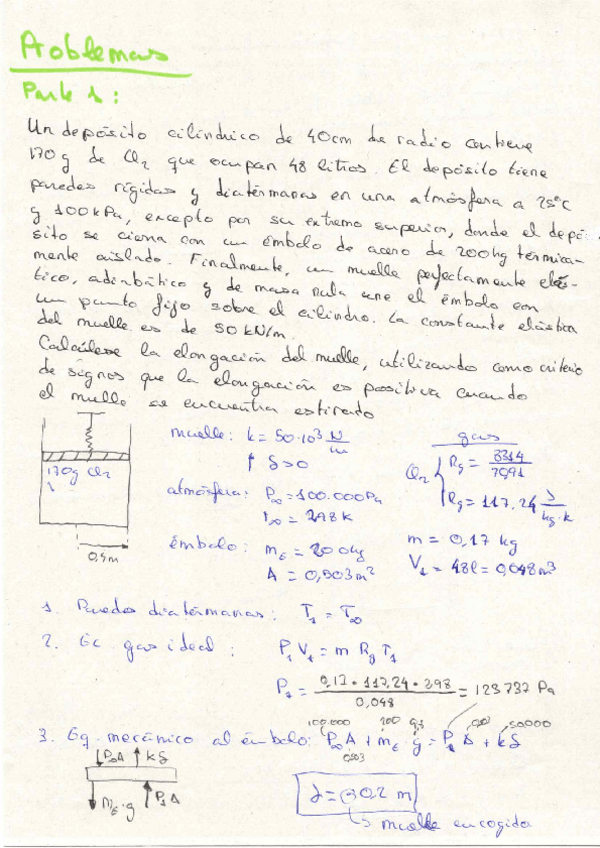 Problemas
Parte 1:
Un depósito cilíndrico de 40cm de radio contiene
170g de Cl2 que ocupan 48 litros. El depósito tiene
paredes rígidas y diatérmanas en una atmósfera a 25ºC
y 100kPa, excepto por su extremo superior, donde el depó-
sito se cierra con un émbolo de acero de 200kg térmica-
mente aislado. Finalmente, un muelle perfectamente elás-
tico, adiabático y de masa nula une el émbolo con
un punto fijo sobre el cilindro. La constante elástica
del muelle es de 50 kN/m.
Calcúlese la elongación del muelle, utilizando como criterio
de signos que la elongación es positiva cuando
el muelle se encuentra estirado
muelle: k = 50·10³ N/m
↑ δ>0
gas
Cl2 { Rg = 8314/70,91
Rg = 117,24 J/kg·k
170g Cl2
atmósfera: P∞ = 100.000Pa
T∞ = 298k
0,4m
émbolo: mE = 200kg
A = 0,503m²
m = 0,17 kg
V1 = 48l = 0,048m³
1. Paredes diatérmanas: T1 = T∞
2. Ec. gas ideal: P1 V1 = m Rg T1
P1 = 0,17 · 117,24 · 298 / 0,048 = 123737 Pa
3. Eq. mecánico al émbolo: P∞A + mE·g = P1 A + kδ
100.000 200 9,8 50000
0,503
P∞A kδ
mE·g P1A
δ = -0,202 m
↳ muelle encogido